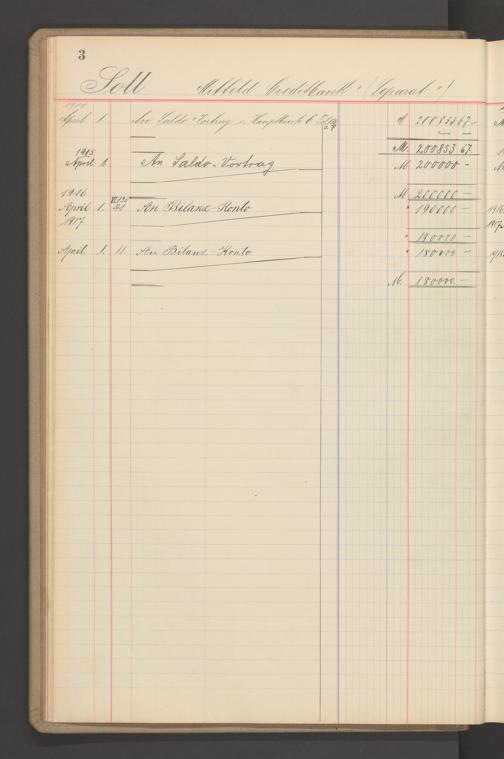 3
Soll Mitteld. Creditbank "(Separat")
1914
April 1. An Saldo-Vortrag M 200853 67
M. 200853 67
1915
April 1. An Saldo-Vortrag M 200000 –
1916 M 200000 –
April 1. An Bilanz-Konto " 190000 –
1917
" 190000 –
April 1. 11. An Bilanz-Konto " 180000 –
M. 180000 –